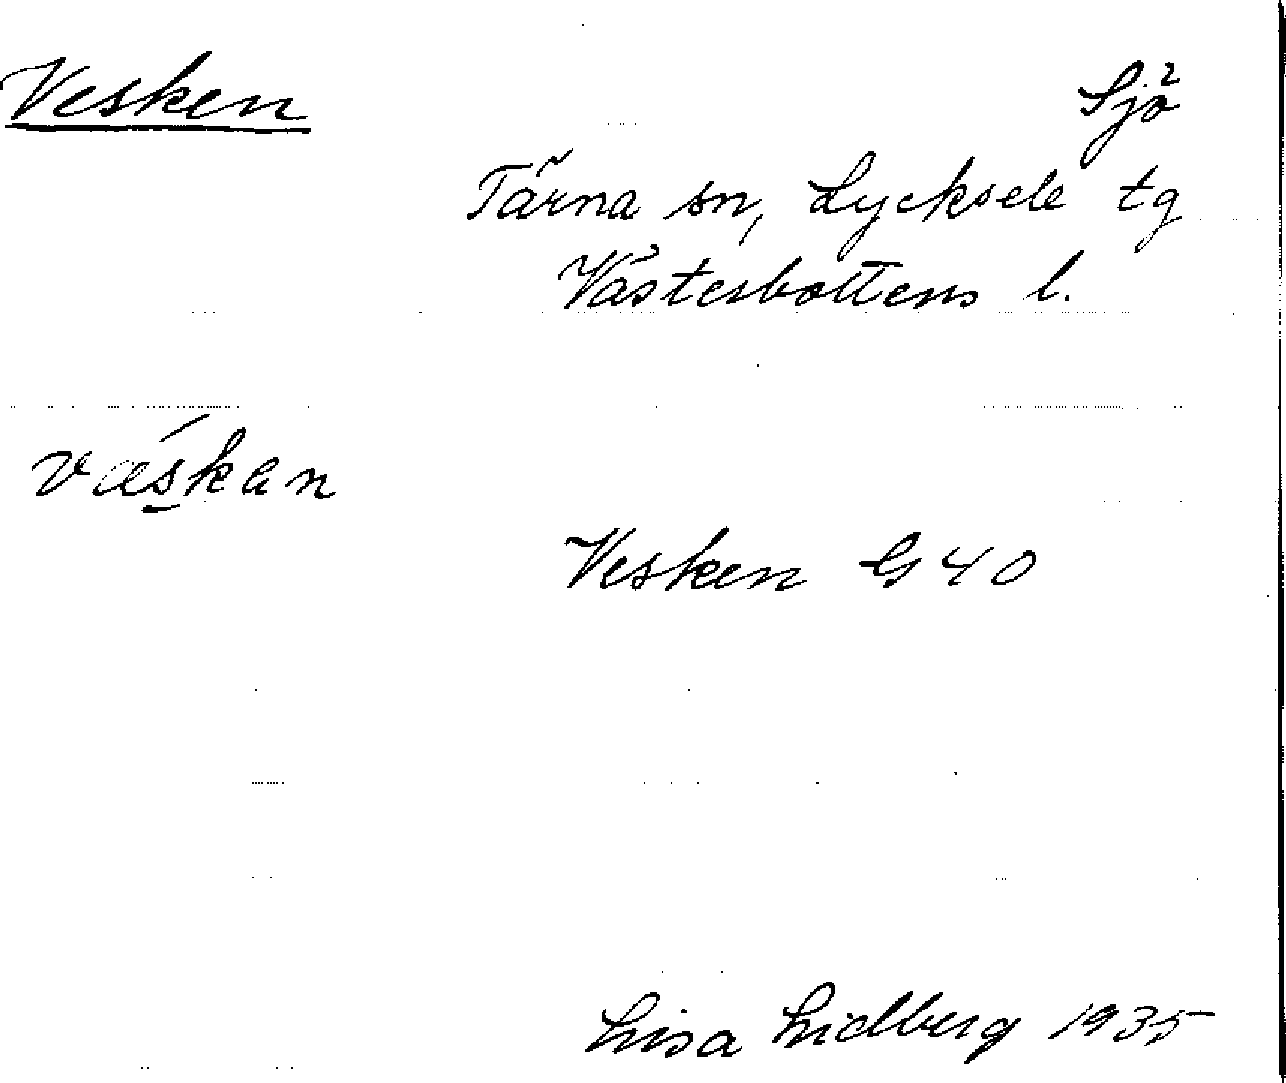 Vesken Sjö
Tärna sn, Lycksele tg
Västerbottens l.
væ´s̱kan
Vesken G 40
Lisa Lidberg 1935